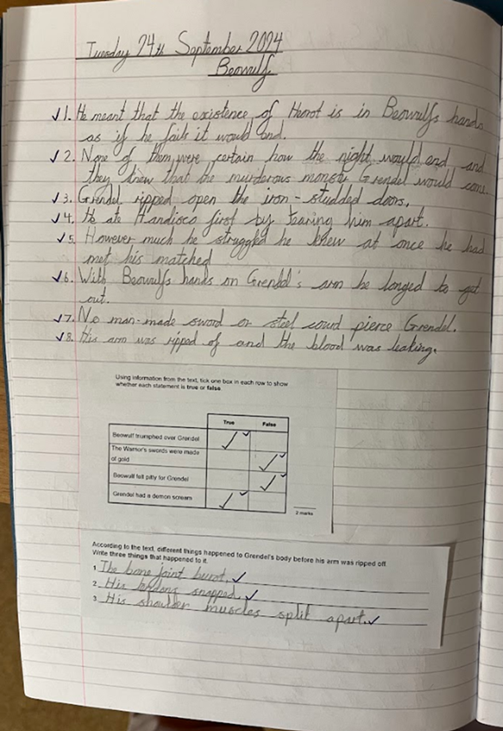 Tuesday 24th September 2024
Beowulf
✓1. He meant that the existence of Heorot is in Beowulfs hands
as if he fails it would end.
✓2. None of them were certain how the night would end and
they knew that the murderous monster Grendel would come.
✓3. Grendel ripped open the iron-studded doors.
✓4. He ate Handisco first by tearing him apart.
✓5. However much he struggled he knew at once he had
met his matched
✓6. With Beowulfs hands on Grendel's arm he longed to get
out.
✓7. No man-made sword or steel could pierce Grendel.
✓8. His arm was ripped of and the blood was leaking.
Using information from the text, tick one box in each row to show
whether each statement is true or false.
True False
Beowulf triumphed over Grendel ✓ ✓
The Warrior's swords were made
of gold ✓ ✓
Beowulf felt pity for Grendel ✓ ✓
Grendel had a demon scream ✓ ✓
2 marks
According to the text, different things happened to Grendel's body before his arm was ripped off.
Write three things that happened to it.
1. The bone joint burst. ✓
2. His tendons snapped. ✓
3. His shoulder muscles split apart. ✓